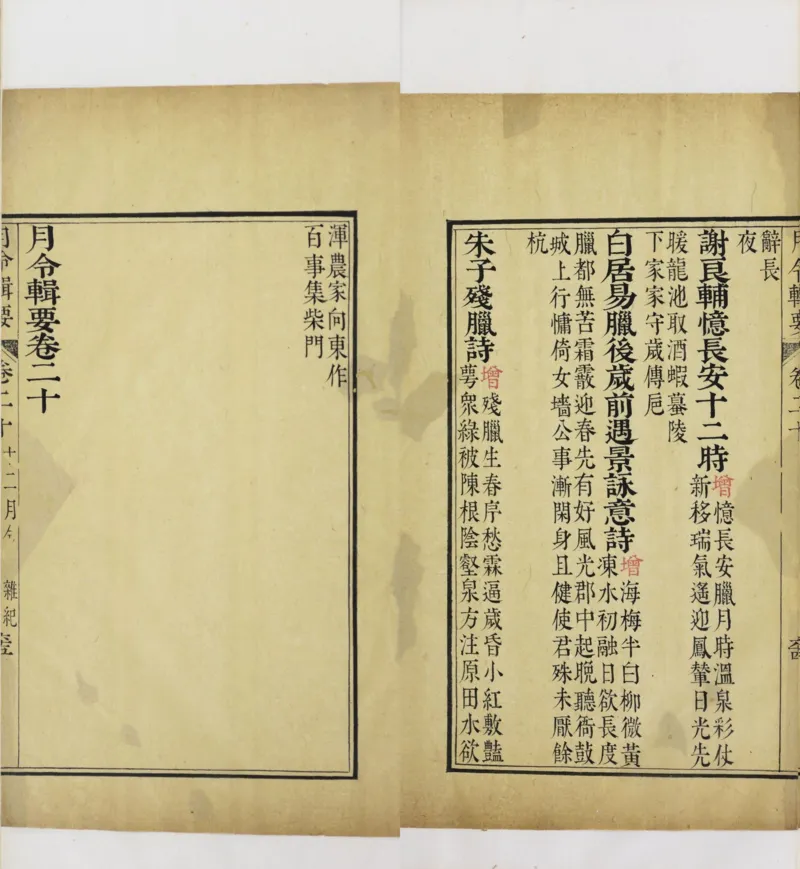 月令輯要 卷二十
辭長
夜
謝良輔憶長安十二時
增憶長安臘月時溫泉彩仗
新移瑞氣遙迎鳳輦日光先
暖龍池取酒蝦蟇陵
下家家守歲傳巵
白居易臘後歲前遇景詠意詩
增海梅半白柳微黃
凍水初融日欲長度
臘都無苦霜霰迎春先有好風光郡中起晩聽衙鼓
城上行慵倚女墻公事漸閑身且健使君殊未厭餘
杭
朱子殘臘詩
增殘臘生春序愁霖逼歲昏小紅敷豔
萼衆綠被陳根陰壑泉方注原田水欲
渾農家向東作
百事集柴門
月令輯要卷二十
月令輯要 卷二十 十二月令 雜紀